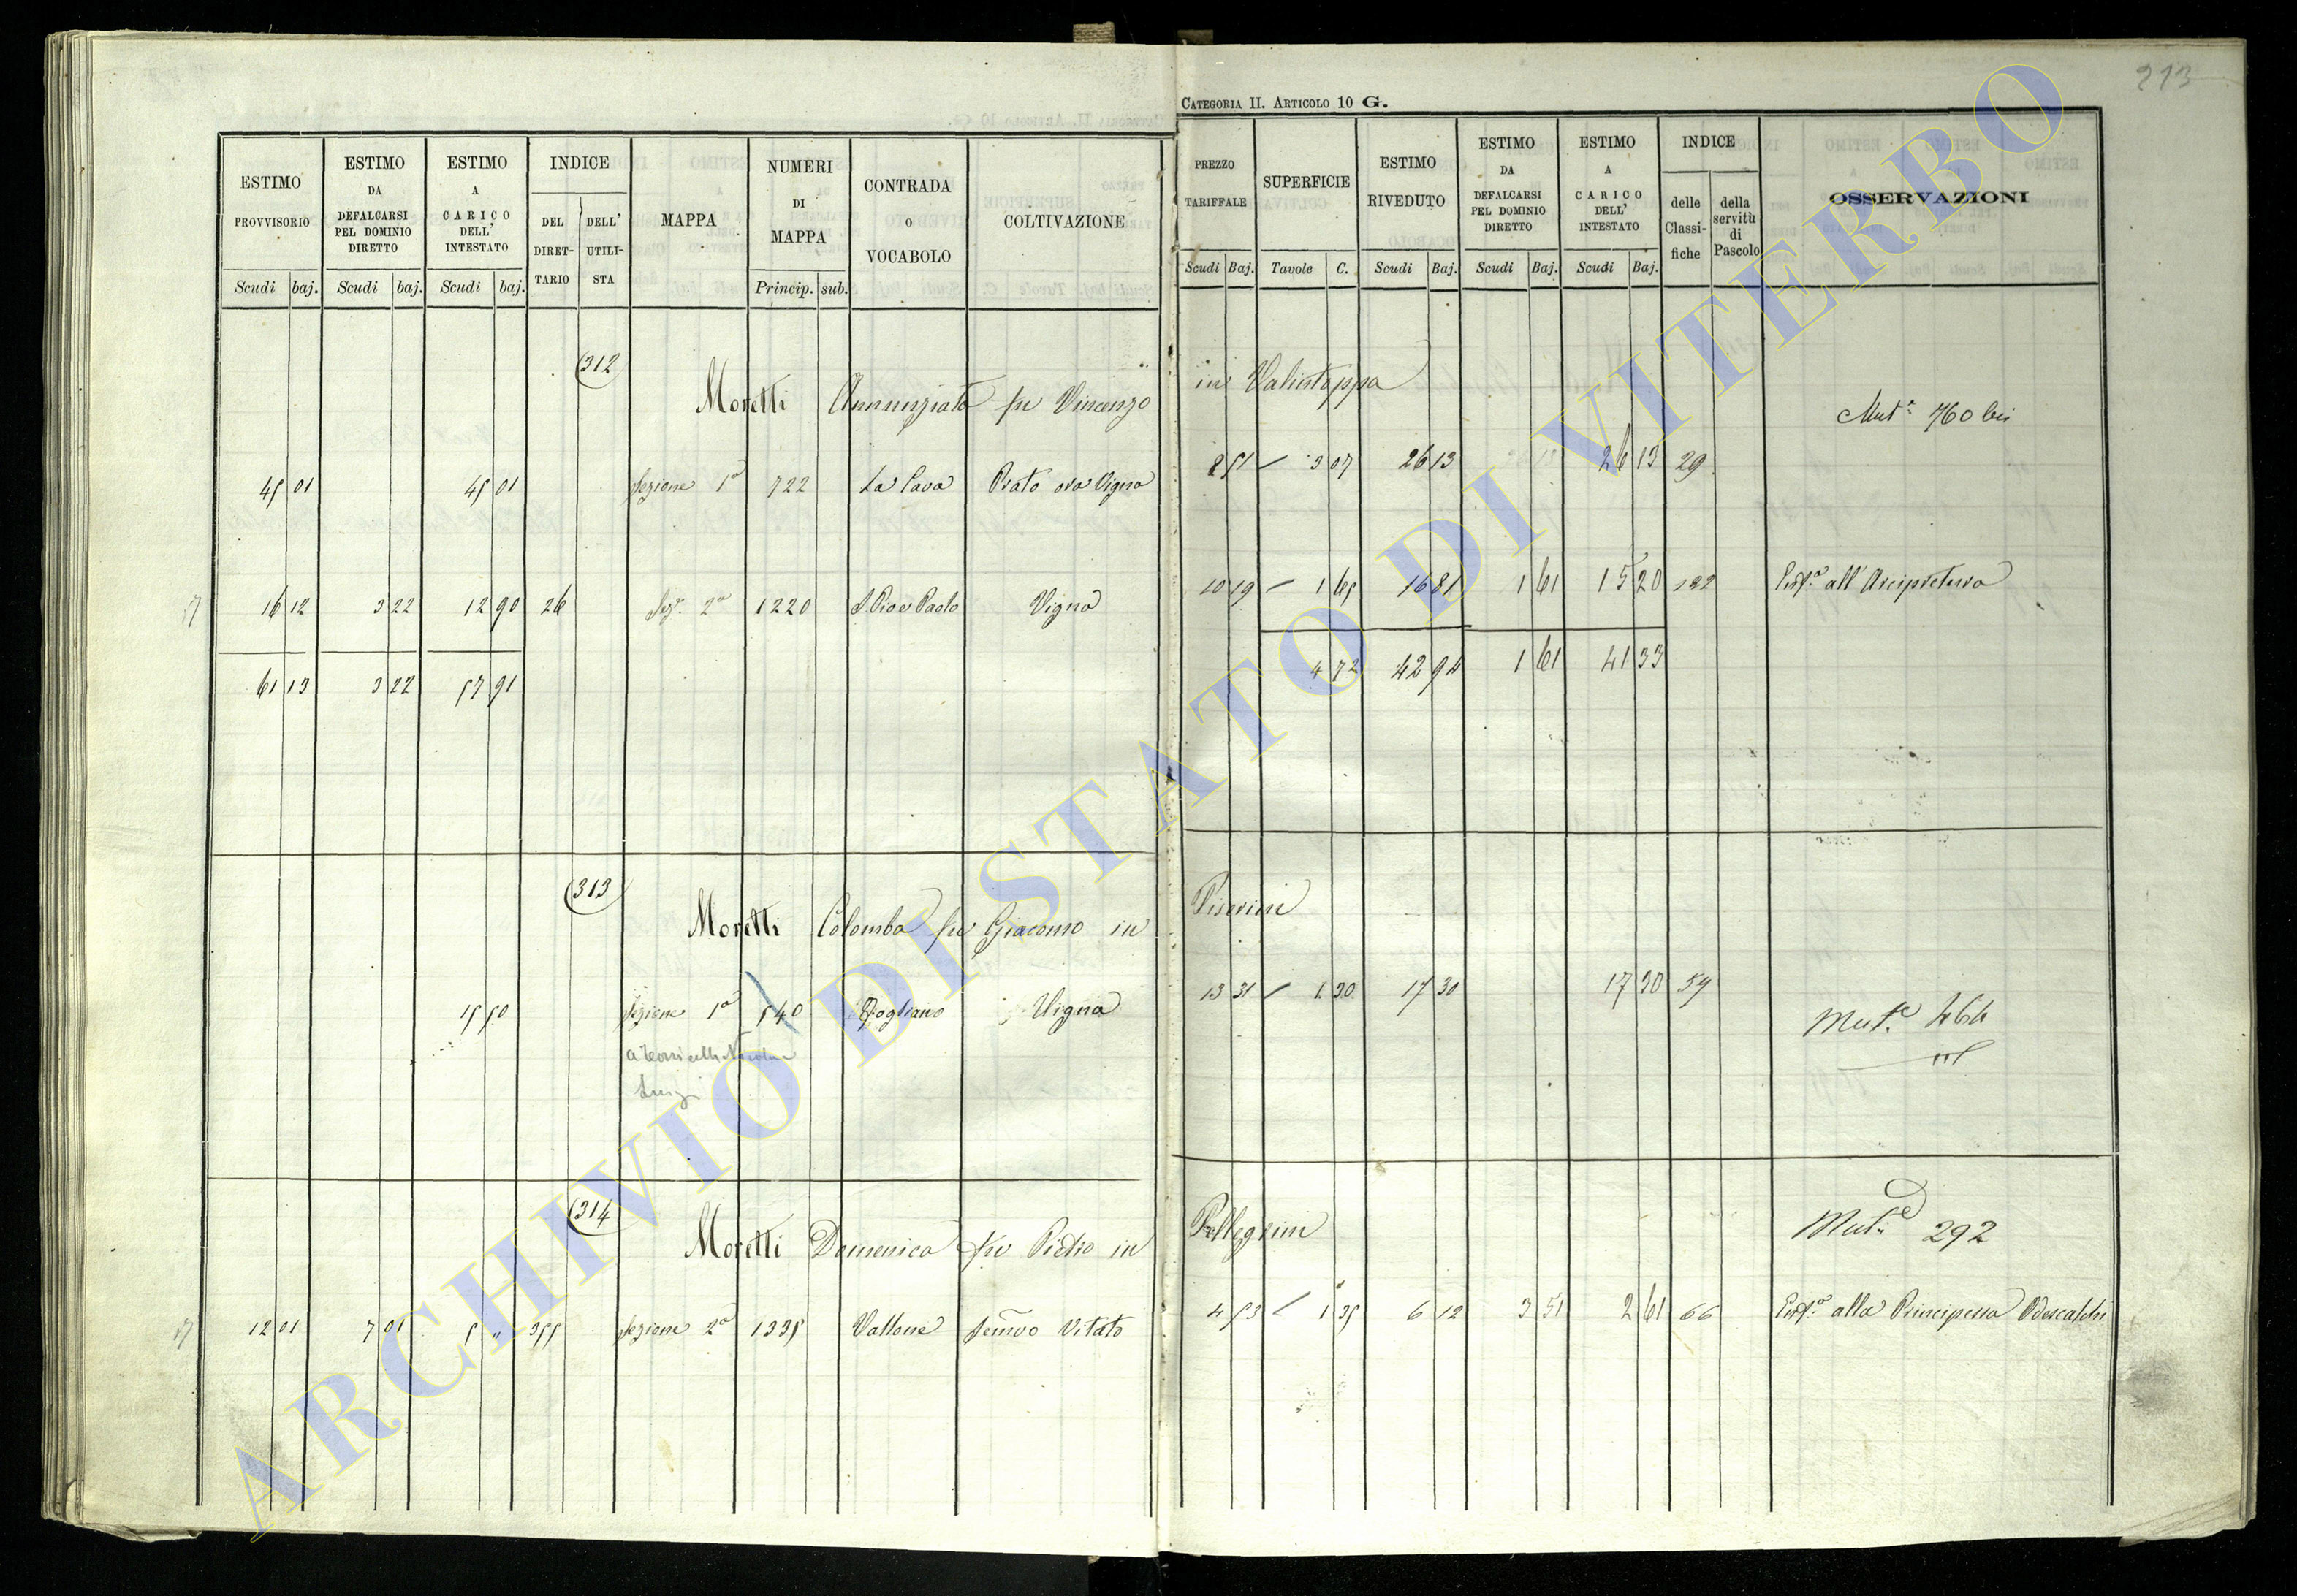 213
CATEGORIA II. ARTICOLO 10 G.
ESTIMO PROVVISORIO Scudi baj.
ESTIMO DA DEFALCARSI PEL DOMINIO DIRETTO Scudi baj.
ESTIMO A CARICO DELL' INTESTATO Scudi baj.
INDICE DEL DIRETTARIO DELL' UTILISTA
MAPPA
NUMERI DI MAPPA Princip. sub.
CONTRADA O VOCABOLO
COLTIVAZIONE
PREZZO TARIFFALE Scudi Baj.
SUPERFICIE Tavole C.
ESTIMO RIVEDUTO Scudi Baj.
ESTIMO DA DEFALCARSI PEL DOMINIO DIRETTO Scudi Baj.
ESTIMO A CARICO DELL' INTESTATO Scudi Baj.
INDICE delle Classifiche della servitù di Pascolo
OSSERVAZIONI
312
Moretti Annunziata fu Vincenzo in Valintoppa
Mut.e 760 bis
45 01 45 01 Sezione 1a 722 La Cava Prato ora Vigna 8 51 3 07 26 13 26 13 29
16 12 3 22 12 90 26 Sez. 2a 1220 S. Pio e Paolo Vigna 10 19 1 65 16 81 1 61 15 20 122 Enf.a all'Arcipretura
61 13 3 22 57 91 4 72 42 94 1 61 41 33
313
Moretti Colomba fu Giacomo in Piserini
15 50 Sezione 1a 540 Fogliano Vigna 13 31 1 30 17 30 17 30 59
Mut.e 464
Luigi
314
Moretti Domenica fu Pietro in Pellegrini
Mut.e 292
12 01 7 01 5 " 355 Sezione 2a 1335 Vallone Semvo Vitato 4 53 1 35 6 12 3 51 2 61 66 Enf.a alla Principessa Odescalchi
ARCHIVIO DI STATO DI VITERBO